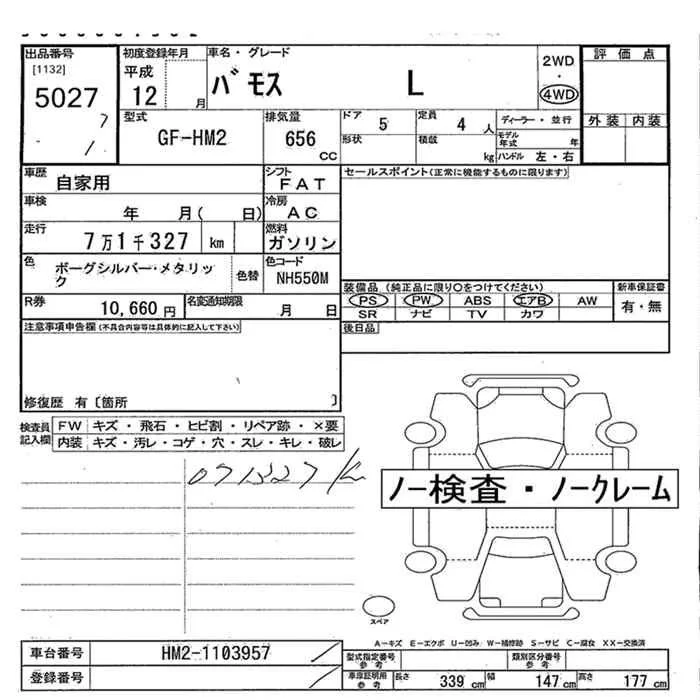 出品番号 初度登録年月 車名・グレード 2WD 評価点
[1132] 平成 ・
5027 12 月 バモス L 4WD
型式 排気量 ドア 5 定員 4 人 ディーラー・並行 外装 内装
GF-HM2 656 cc 形状 積載 kg モデル年式 年
ハンドル 左・右
車歴 自家用 シフト FAT セールスポイント(正常に機能するものに限ります)
車検 年 月( 日) 冷房 AC
走行 7万1千327 km 燃料 ガソリン
色 ボーグシルバー・メタリック 色替 色コード NH550M
装備品(純正品に限り○をつけてください) 新車保証書
R券 10,660円 名変通知期限 月 日
PS PW ABS エアB AW 有・無
SR ナビ TV カワ
注意事項申告欄(不具合内容等は具体的に記入して下さい) 後日品
修復歴 有〔箇所 〕
検査員記入欄 FW キズ・飛石・ヒビ割・リペア跡・×要
内装 キズ・汚レ・コゲ・穴・スレ・キレ・破レ
071327 km
ノー検査・ノークレーム
スペア
A―キズ E―エクボ U―凹み W―補修跡 S―サビ C―腐食 XX―交換済
車台番号 HM2-1103957 型式指定番号 参考 類別区分番号 参考
登録番号 車庫証明用 参考 長さ 339 cm 幅 147 cm 高さ 177 cm